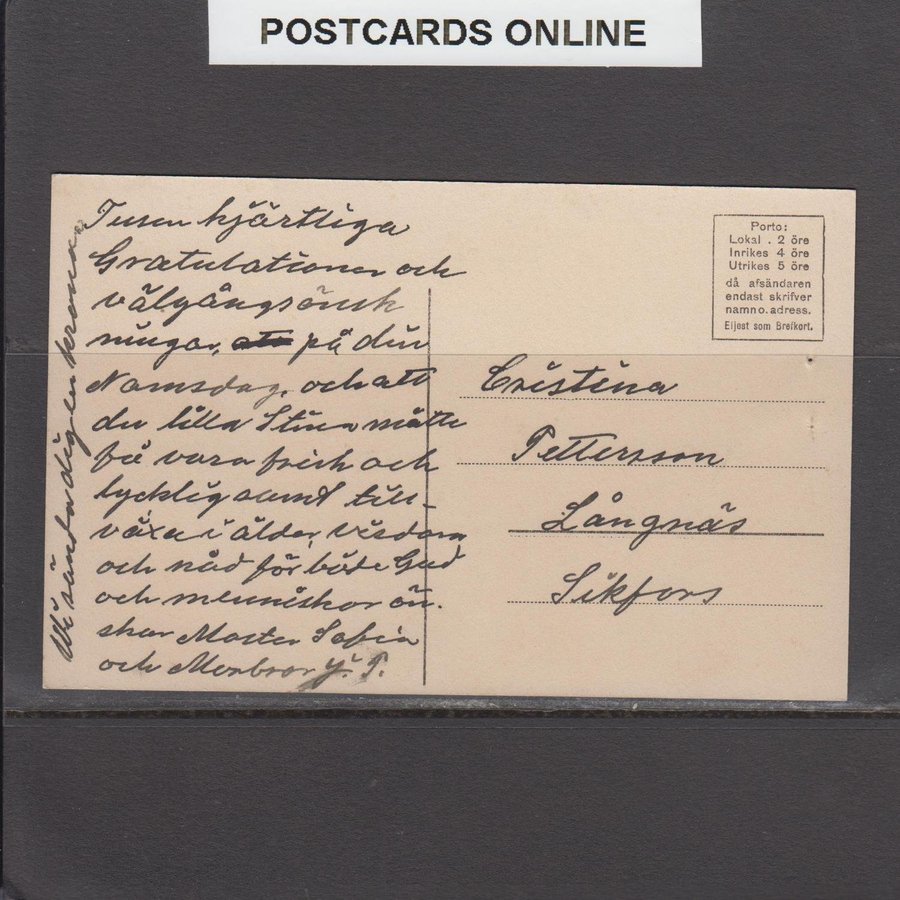 POSTCARDS ONLINE
Tusen hjärtliga
Gratulationer och
välgångsönsk
ningar, på din
Namsdag, och att
du lilla Stina måtte
få vara frisk och
lycklig samt till-
växa i ålder, visdom
och nåd för både Gud
och menniskor ön.
skar Moster Sofia
och Morbror J. P.
Vi sända dig en krona
Porto:
Lokal . 2 öre
Inrikes 4 öre
Utrikes 5 öre
då afsändaren
endast skrifver
namn o. adress.
Eljest som Brefkort.
Cristina
Pettersson
Långnäs
Sikfors